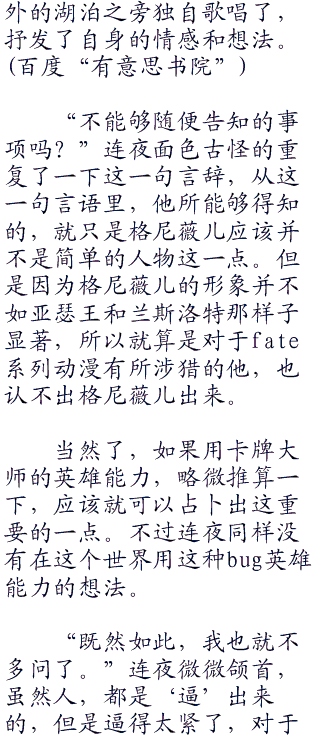 外的湖泊之旁独自歌唱了，
抒发了自身的情感和想法。
(百度“有意思书院”)
“不能够随便告知的事
项吗？”连夜面色古怪的重
复了一下这一句言辞，从这
一句言语里，他所能够得知
的，就只是格尼薇儿应该并
不是简单的人物这一点。但
是因为格尼薇儿的形象并不
如亚瑟王和兰斯洛特那样子
显著，所以就算是对于fate
系列动漫有所涉猎的他，也
认不出格尼薇儿出来。
当然了，如果用卡牌大
师的英雄能力，略微推算一
下，应该就可以占卜出这重
要的一点。不过连夜同样没
有在这个世界用这种bug英雄
能力的想法。
“既然如此，我也就不
多问了。”连夜微微颌首，
虽然人，都是‘逼’出来
的，但是逼得太紧了，对于